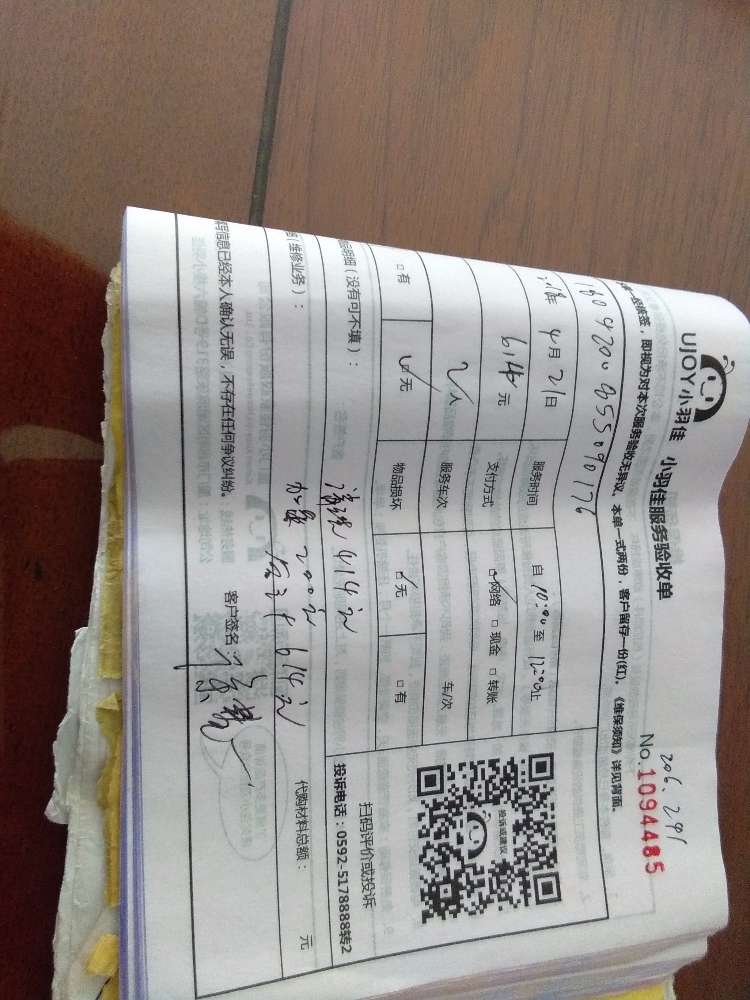 UJOY小羽佳 小羽佳服务验收单
206.241
No.1094485
即视为对本次服务验收无异议。本单一式两份，客户留存一份(红)。《维保须知》详见背面。
1804200855090176
2018年4月21日 服务时间 自10:00至12:00止
614元 支付方式 ☑网络 □现金 □转账
2人 服务车次 车/次
□有 ☑无 物品损坏 ☑无 □有
投诉或建议
扫码评价或投诉
投诉电话：0592-5178888转2
明细（没有可不填）：
清洗414元
加氟200元
合计614元
（维修业务）：
代购材料总额： 元
信息已经本人确认无误，不存在任何争议纠纷。
客户签名：